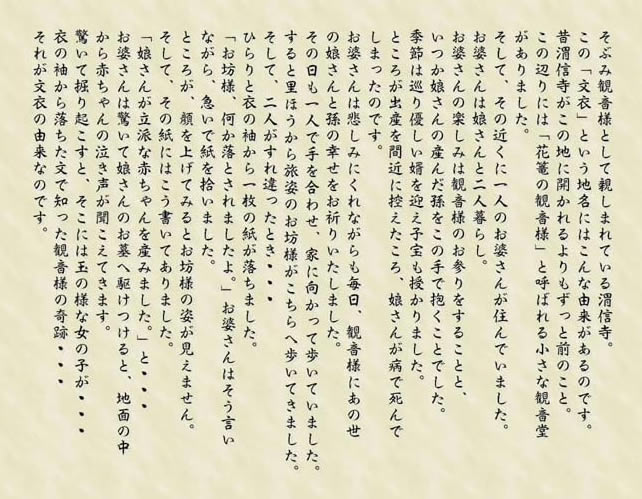 そぶみ観音様として親しまれている渭信寺。
この「文衣」という地名にはこんな由来があるのです。
昔渭信寺がこの地に開かれるよりもずっと前のこと。
この辺りには「花篭の観音様」と呼ばれる小さな観音堂
がありました。
そして、その近くに一人のお婆さんが住んでいました。
お婆さんは娘さんと二人暮らし。
お婆さんの楽しみは観音様のお参りをすることと、
いつか娘さんの産んだ孫をこの手で抱くことでした。
季節は巡り優しい婿を迎え子宝も授かりました。
ところが出産を間近に控えたころ、娘さんが病で死んで
しまったのです。
お婆さんは悲しみにくれながらも毎日、観音様にあの世
の娘さんと孫の幸せをお祈りいたしました。
その日も一人で手を合わせ、家に向かって歩いていました。
すると里ほうから旅姿のお坊様がこちらへ歩いてきました。
そして、二人がすれ違ったとき・・・
ひらりと衣の袖から一枚の紙が落ちました。
「お坊様、何か落とされましたよ。」お婆さんはそう言い
ながら、急いで紙を拾いました。
ところが、顔を上げてみるとお坊様の姿が見えません。
そして、その紙にはこう書いてありました。
「娘さんが立派な赤ちゃんを産みました。」と・・・
お婆さんは驚いて娘さんのお墓へ駆けつけると、地面の中
から赤ちゃんの泣き声が聞こえてきます。
驚いて掘り起こすと、そこには玉の様な女の子が・・・
衣の袖から落ちた文で知った観音様の奇跡・・・
それが文衣の由来なのです。